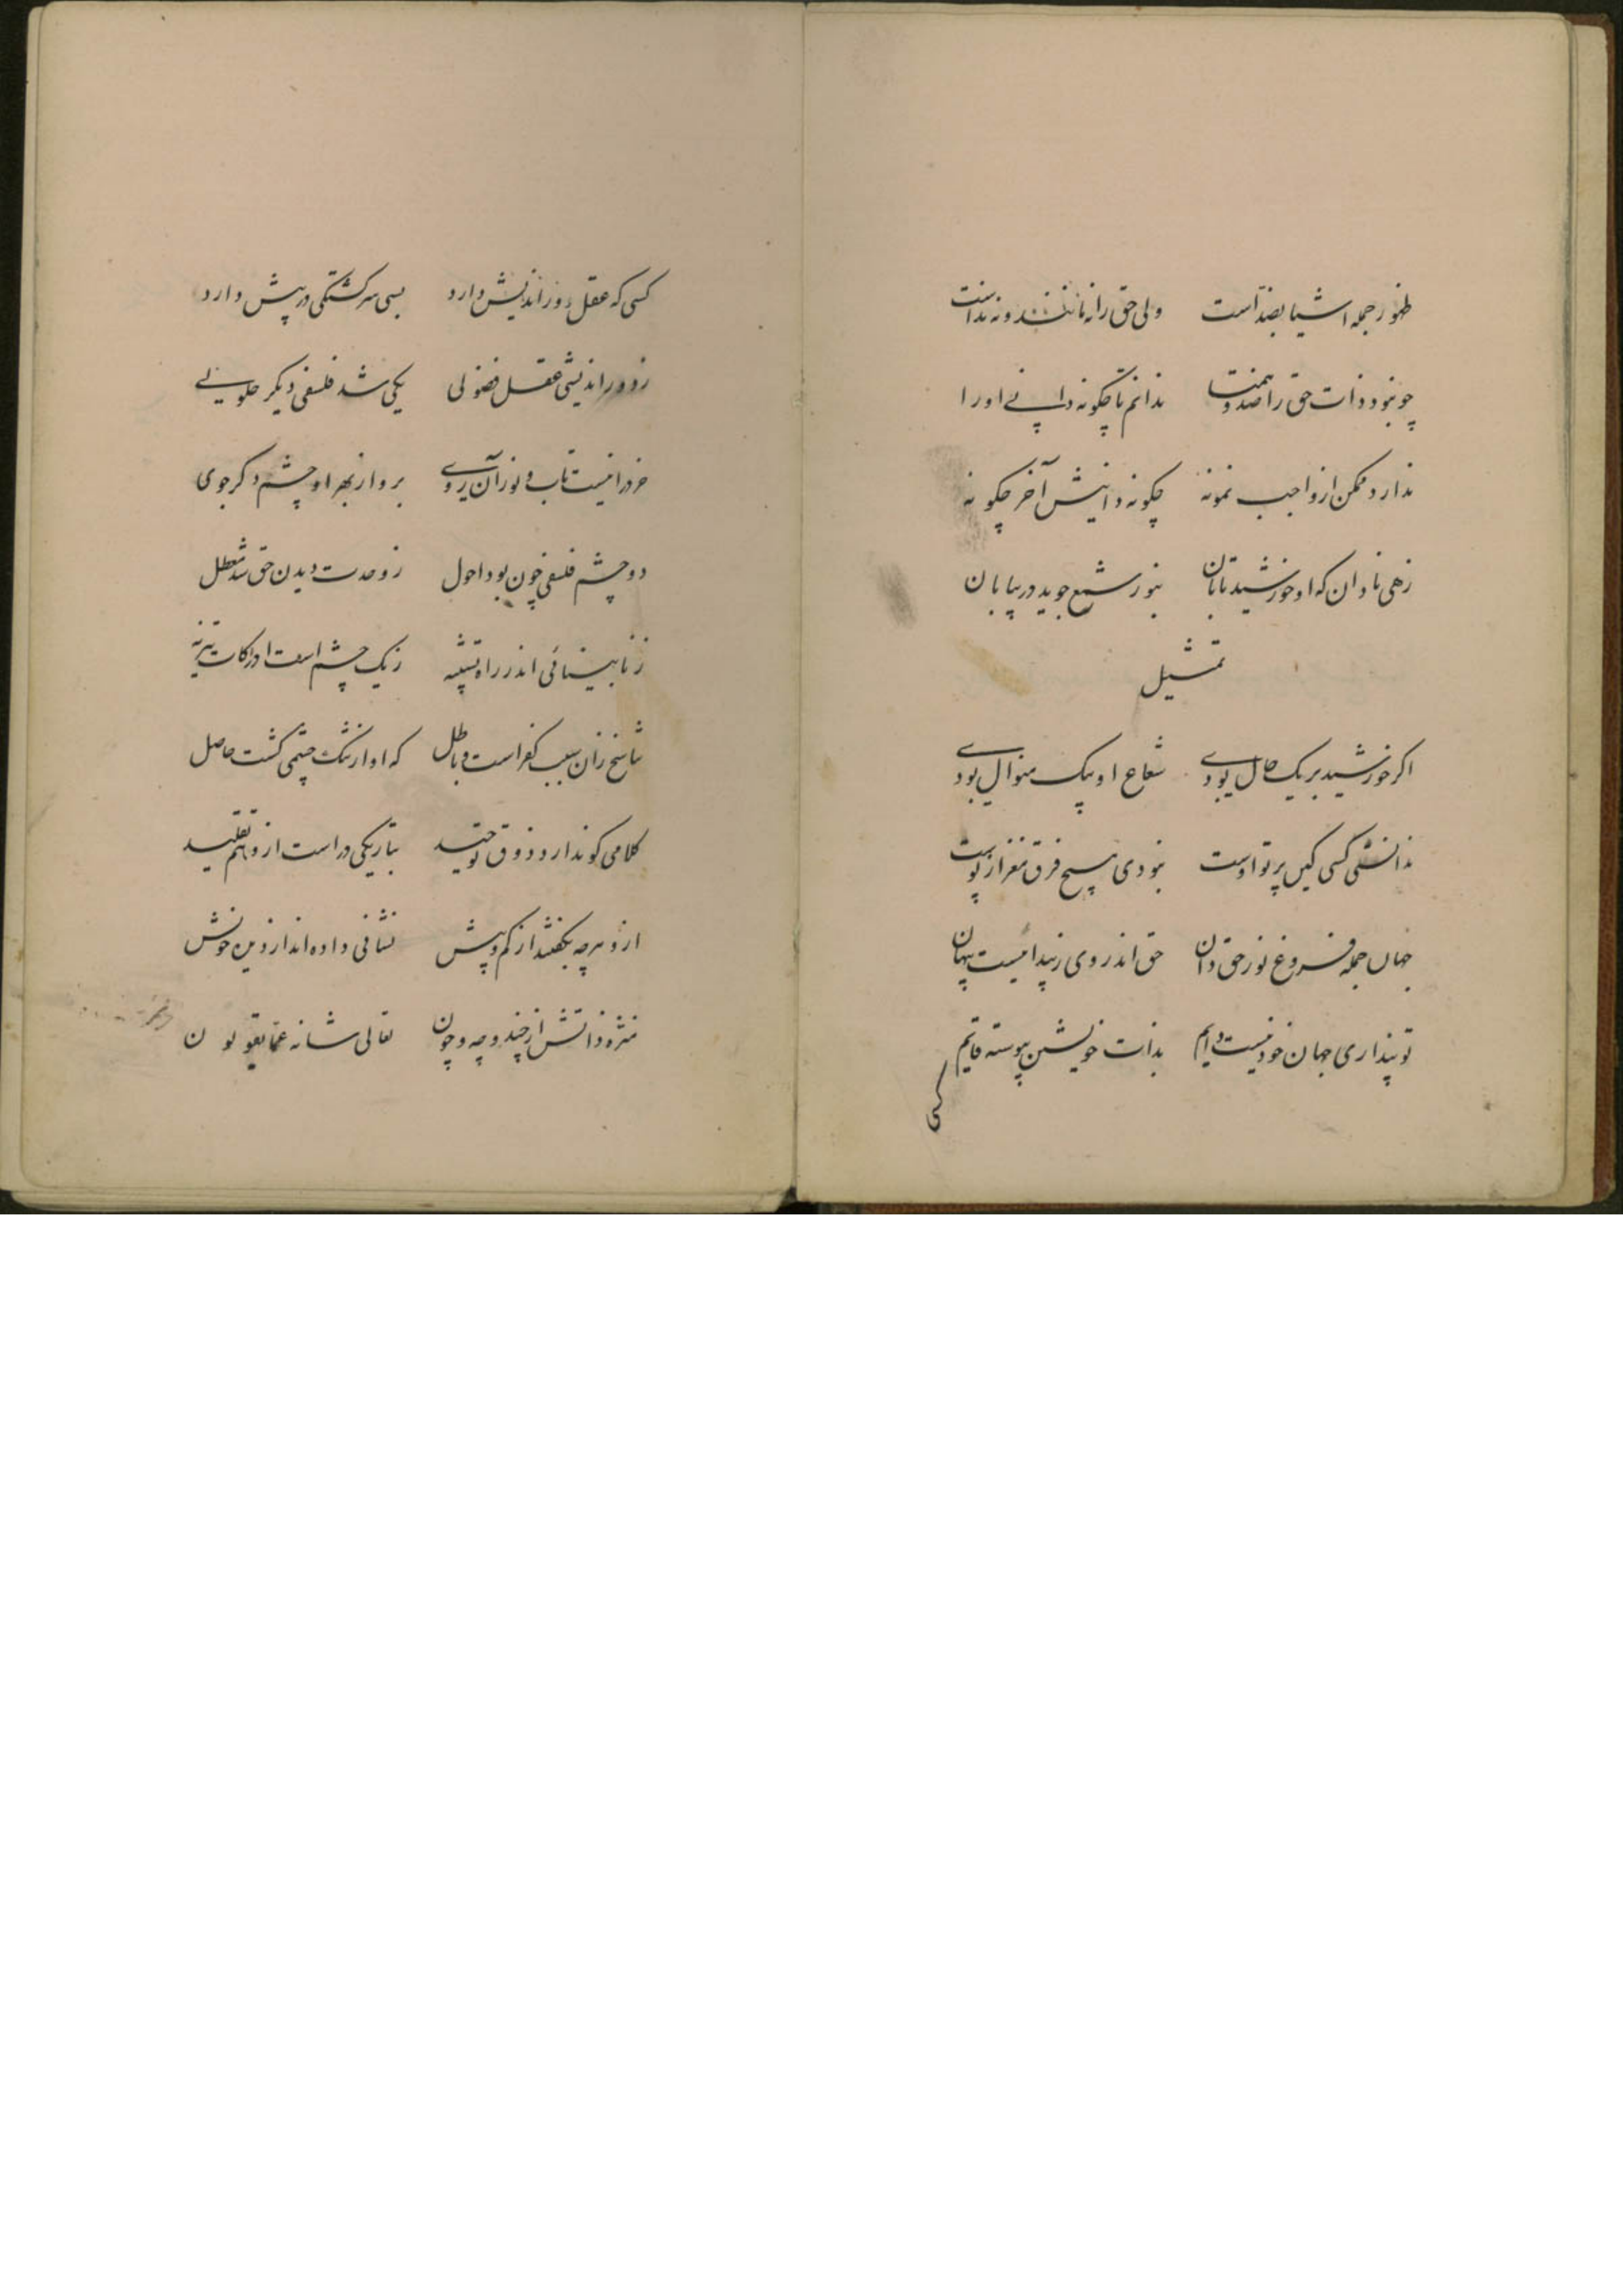 ظهور جمله اشیا بضد است ولی حق را نه مانند و نه ند است
چو نبود ذات حق را ضد و همتا ندانم تا چگونه دانی او را
ندارد ممکن از واجب نمونه چگونه دانیش آخر چگونه
زهی نادان که او خورشید تابان بنور شمع جوید در بیابان
تمثیل
اگر خورشید بر یک حال بودی شعاع او بیک منوال بودی
ندانستی کسی کین پرتو اوست نبودی هیچ فرق مغز از پوست
جهان جمله فروغ نور حق دان حق اندر وی ز پیدائیست پنهان
تو پنداری جهان خود نیست دایم بذات خویشتن پیوسته قایم
کسی
کسی که عقل دور اندیش دارد بسی سرکشتکی در پیش دارد
ز دور اندیشی عقل فضولی یکی شد فلسفی دیکر حلولی
خرد را نیست تاب نور آن روی برو از بهر او چشم دکر جوی
دو چشم فلسفی چون بود احول ز وحدت دیدن حق شد معطل
ز نابینائی اندر راه تشبیه ز یک چشم است ادراکات تنزیه
تناسخ زان سبب کفر است و باطل که او از تنک چشمی کشت حاصل
کلامی کو ندارد ذوق توحید بتاریکی در است از وهم تقلید
ازو هرچه بکفتند از کم و بیش نشانی داده اند از دین خویش
منزه ذاتش از چند و چه و چون تعالی شانه عما یقولون